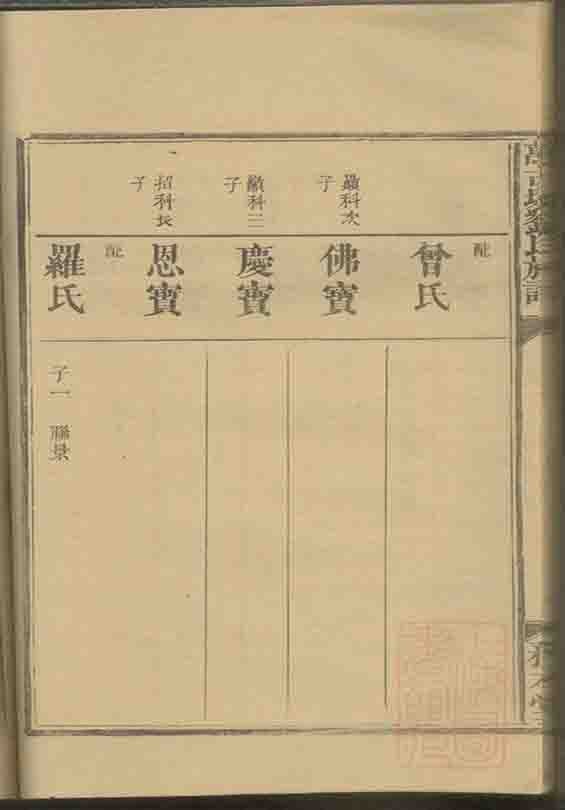 配
曾氏
科次子
佛寶
科三子
慶寶
招科長子
恩寶
配
羅氏
子一 聯景